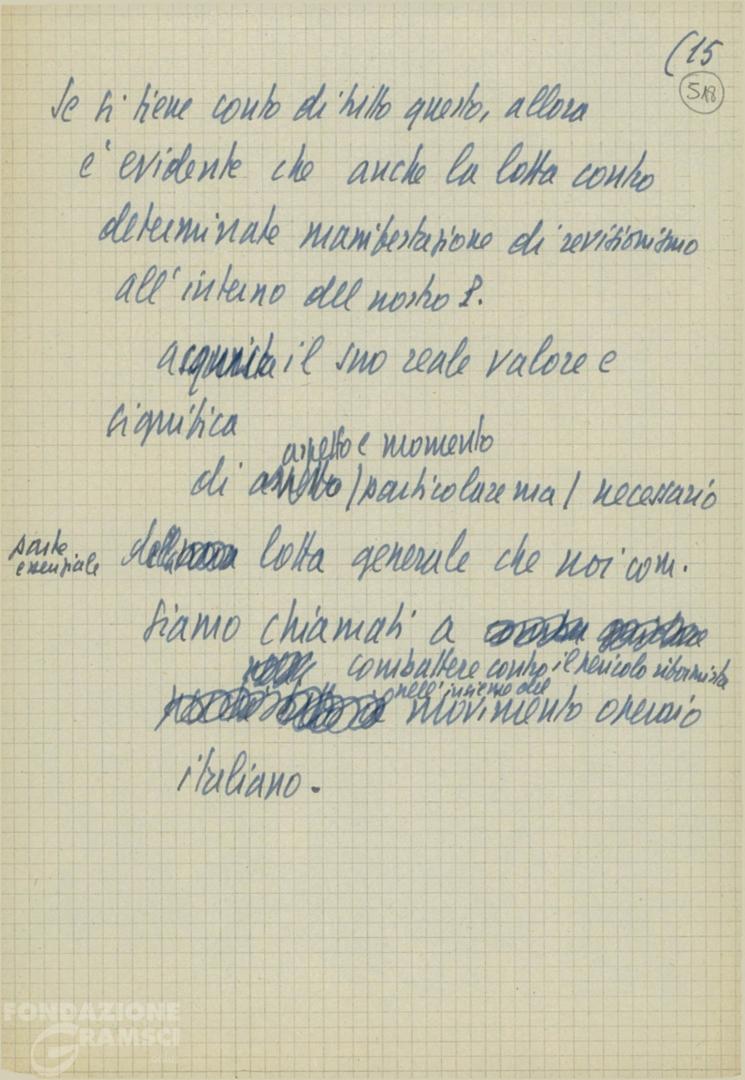 (15
518
Se si tiene conto di tutto questo, allora
è evidente che anche la lotta contro
determinate manifestazione di revisionismo
all'interno del nostro P.
acquista il suo reale valore e
significa
aspetto e momento
di aspetto / particolare ma / necessario
parte
essenziale
della lotta generale che noi com.
siamo chiamati a
combattere contro il pericolo riformista
nell'insieme del
movimento operaio
italiano.
FONDAZIONE
GRAMSCI